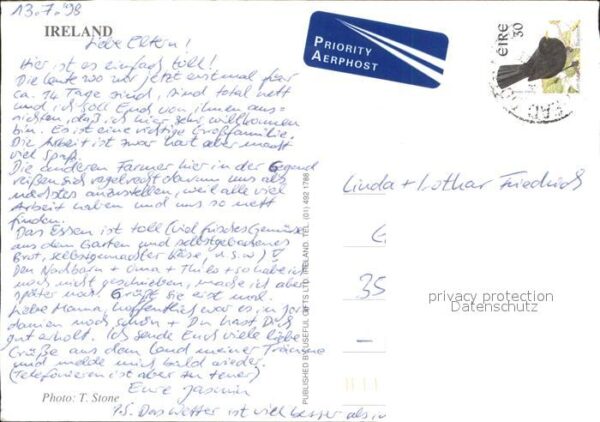 13.7.98
IRELAND
Liebe Eltern!
Hier ist es einfach toll!
Die Leute wo wir jetzt erstmal hier
ca. 14 Tage sind, sind total nett
und ich soll Euch von ihnen aus-
richten, daß ich hier sehr willkommen
bin. Es ist eine richtige Großfamilie.
Die Arbeit ist zwar hart aber macht
viel Spaß.
Die anderen Farmer hier in der Gegend
reißen sich regelrecht darum uns als
nächstes anzustellen, weil alle viel
Arbeit haben und uns so nett
finden.
Das Essen ist toll (viel frisches Gemüse
aus dem Garten und selbstgebackenes
Brot, selbstgemachter Käse, u.s.w.)!
Den Nachbarn + Oma + Thilo + so habe ich
noch nicht geschrieben, mache ich aber
später noch. Grüßt Sie erst mal.
Liebe Mama, hoffentlich war es in
noch schön + Du hast Dich
gut erholt. Ich sende Euch viele liebe
Grüße aus dem Land meiner Träume
und melde mich bald wieder.
(Telefonieren ist aber zu teuer)
Eure Jasmin
P.S. Das Wetter ist viel besser als
Photo: T. Stone
PUBLISHED BY USEFUL GIFTS LTD. IRELAND. TEL. (01) 492 1786
PRIORITY
AERPHOST
ÉIRE 30
Linda + Lothar Friedrich
G
35
privacy protection
Datenschutz